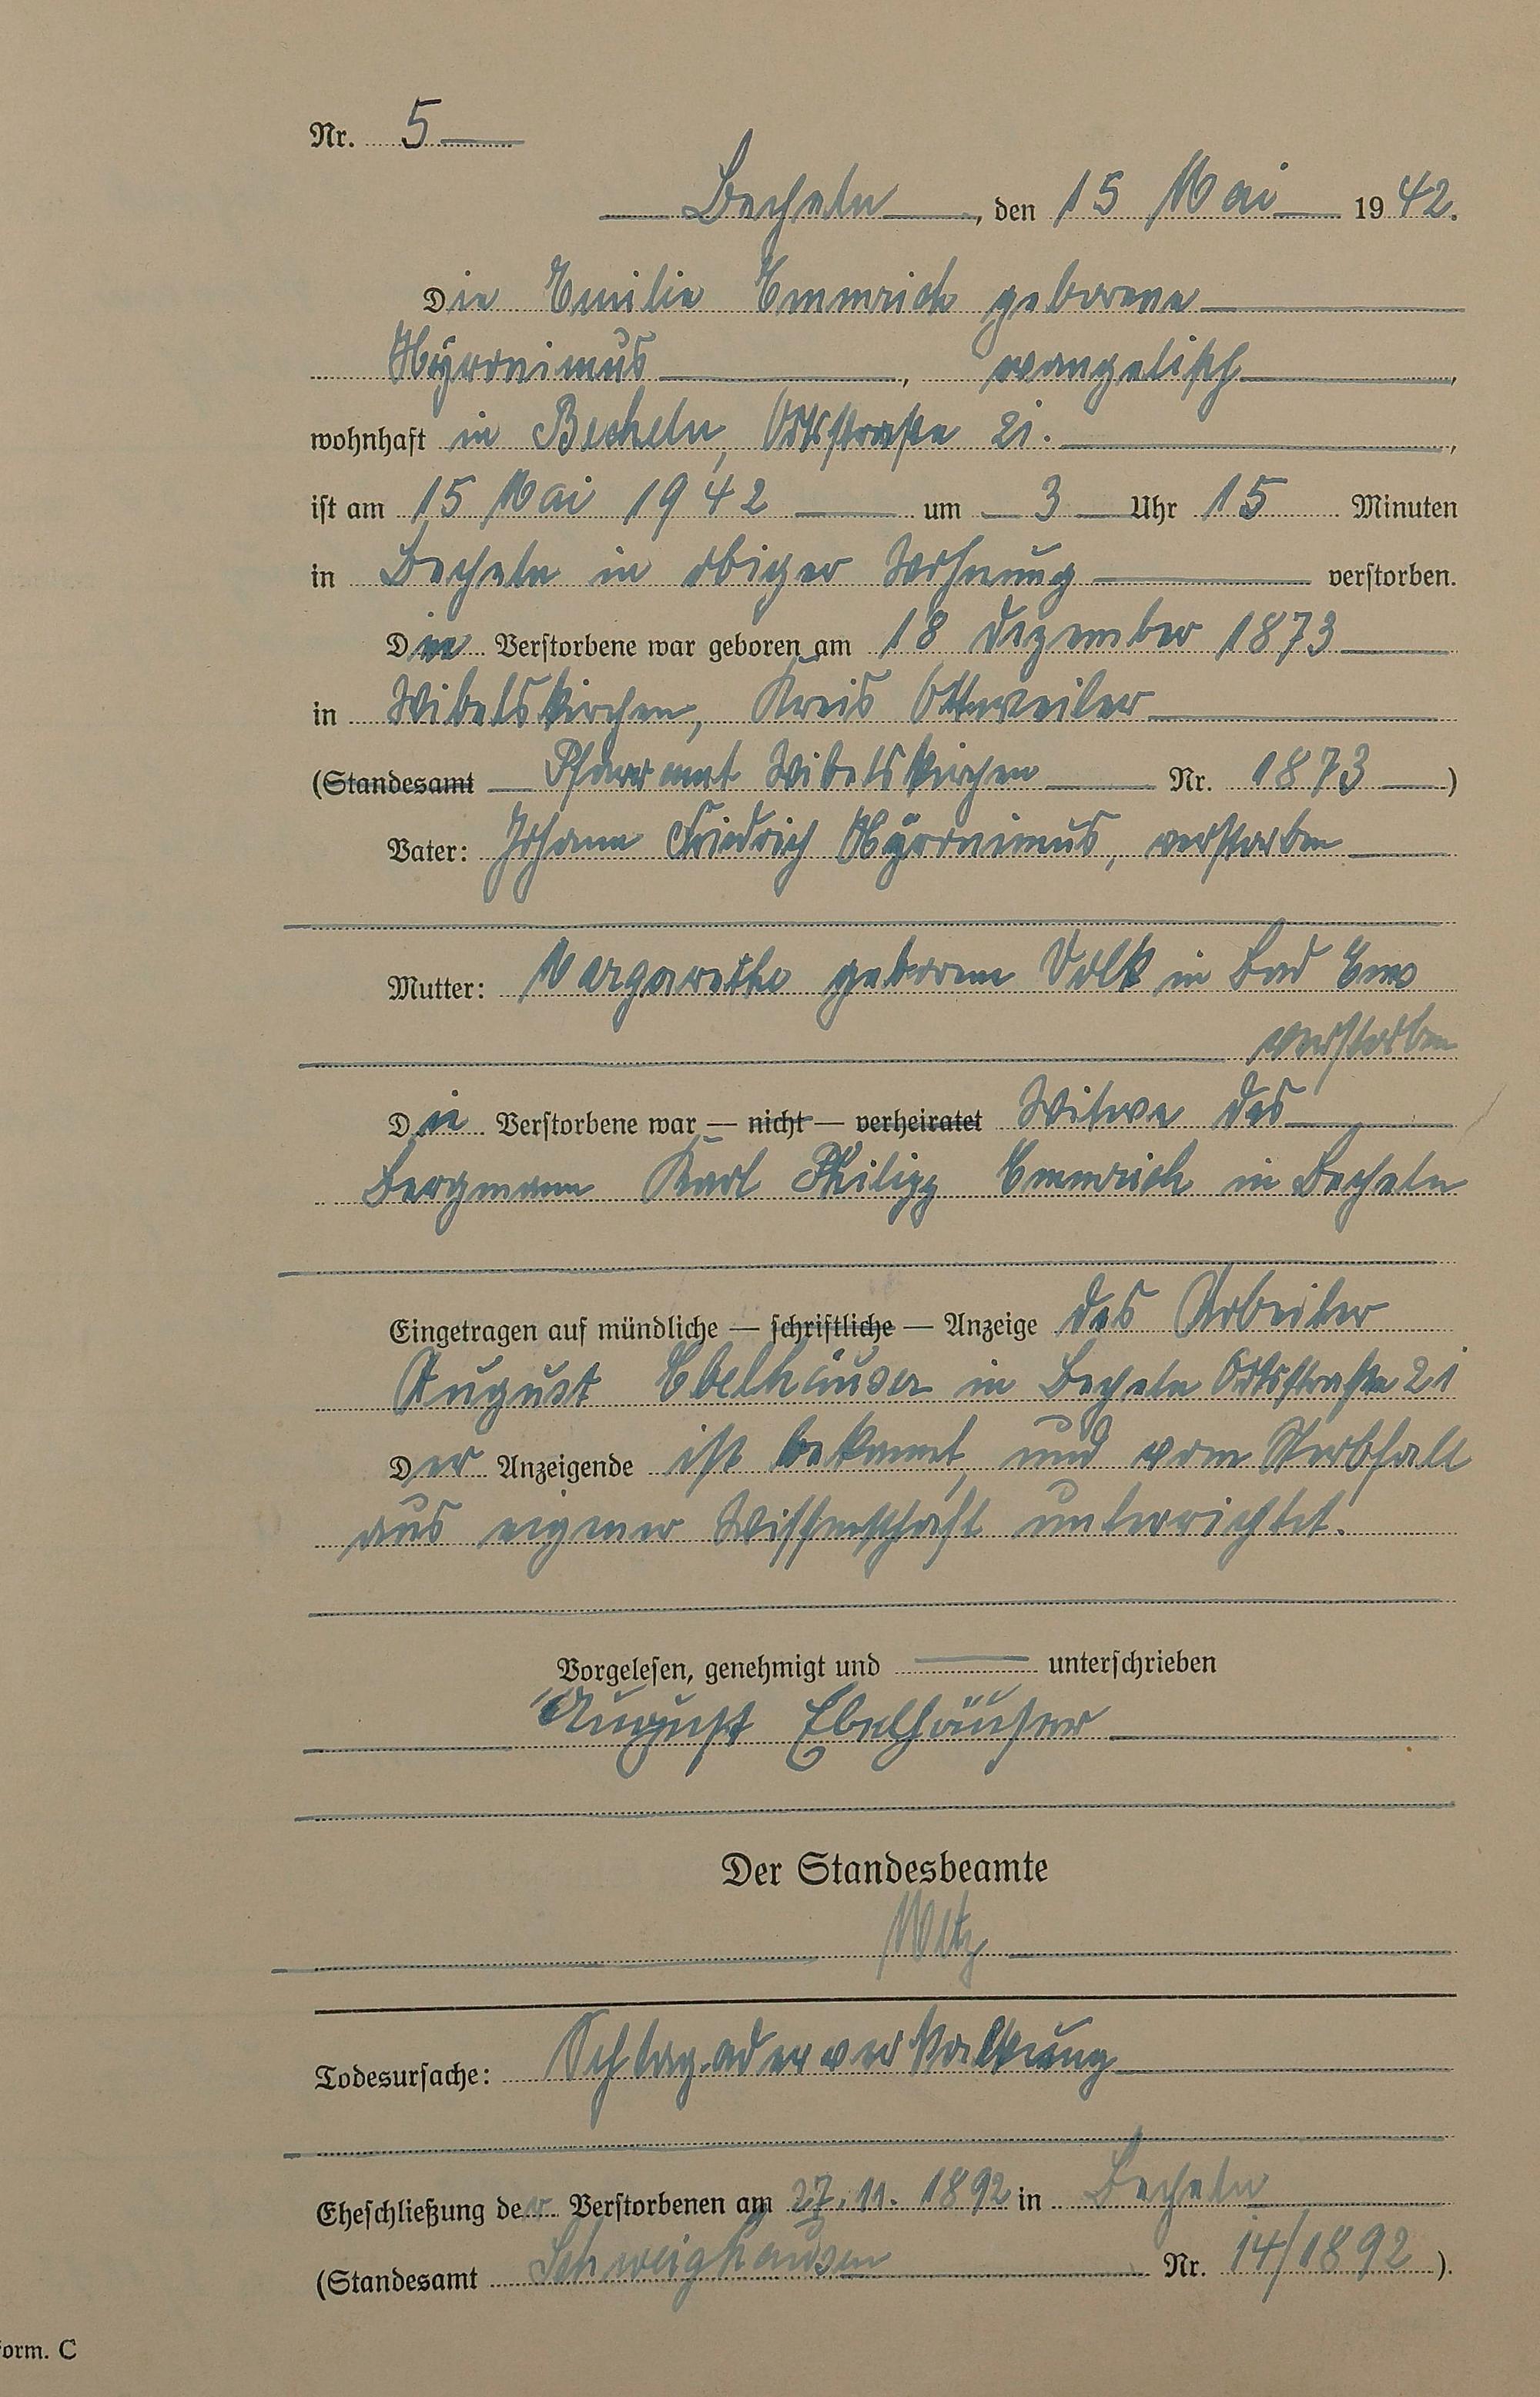 Nr. 5
Becheln, den 15 Mai 1942.
Die Emilie Emmrich geborene
Hyronimus, evangelisch,
wohnhaft in Becheln, Ortsstraße 21.,
ist am 15 Mai 1942 um 3 Uhr 15 Minuten
in Becheln in obiger Wohnung verstorben.
Die Verstorbene war geboren am 18 Dezember 1873
in Wibelskirchen, Kreis Ottweiler
(Standesamt Pfarramt Wibelskirchen Nr. 1873)
Vater: Johann Friedrich Hyronimus, verstorben
Mutter: Margarethe geborene Volk in Bad Ems
verstorben
Die Verstorbene war — nicht — verheiratet Witwe des
Bergmann Karl Philipp Emmrich in Becheln
Eingetragen auf mündliche — schriftliche — Anzeige des Arbeiter
August Ebelhäuser in Becheln Ortsstraße 21
Der Anzeigende ist bekannt, und vom Sterbfall
aus eigener Wissenschaft unterrichtet.
Vorgelesen, genehmigt und unterschrieben
August Ebelhäuser
Der Standesbeamte
Metz
Todesursache: Schlagaderverkalkung
Eheschließung der Verstorbenen am 27.11.1892 in Becheln
(Standesamt Schweighausen Nr. 14/1892).
orm. C